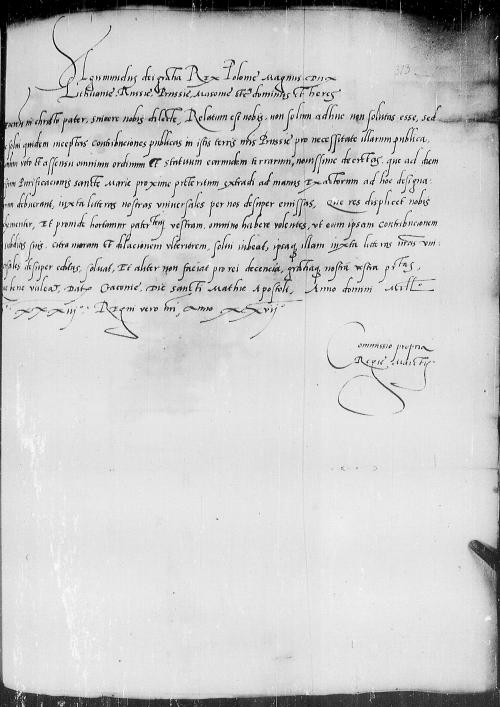 Sigismundus dei gratia Rex Polonie Magnus Dux
Lithuanie, Russie, Prussie, Masovie etc. dominus Et heres
in christo pater, sincere nobis dilecte, Relatum est nobis, non solum adhuc non solutas esse, sed
solui quidem inceptas contribuciones publicas in istis terris nris Prussie pro necessitate illarum publica,
voto et assensu omnium ordinum Et statuum earundem terrarum, novissime decretas, que ad diem
Purificacionis sancte Marie proxime preteritum extradi ad manus Exactorum ad hoc designa
debuerant, iuxta litteras nostras universales per nos desuper emissas, Que res displicet nobis
Et proinde hortamur pater tem vestram, omnino habere volentes, ut eam ipsam contribucionem
subditis suis, citra moram Et dilacionem ulteriorem, solui iubeat, ipsaq illam iuxta litteras nras uni
desuper editas, soluat, Et aliter non faciat pro rei decencia, gratiaq nostra vestra ptas,
bene valeat, Dat Cracovie, Die sancti Mathie Apostoli, Anno domini Mill
XXXiii Regni vero nri, anno XXVii
Commissio propria
Regie Maiestis
313